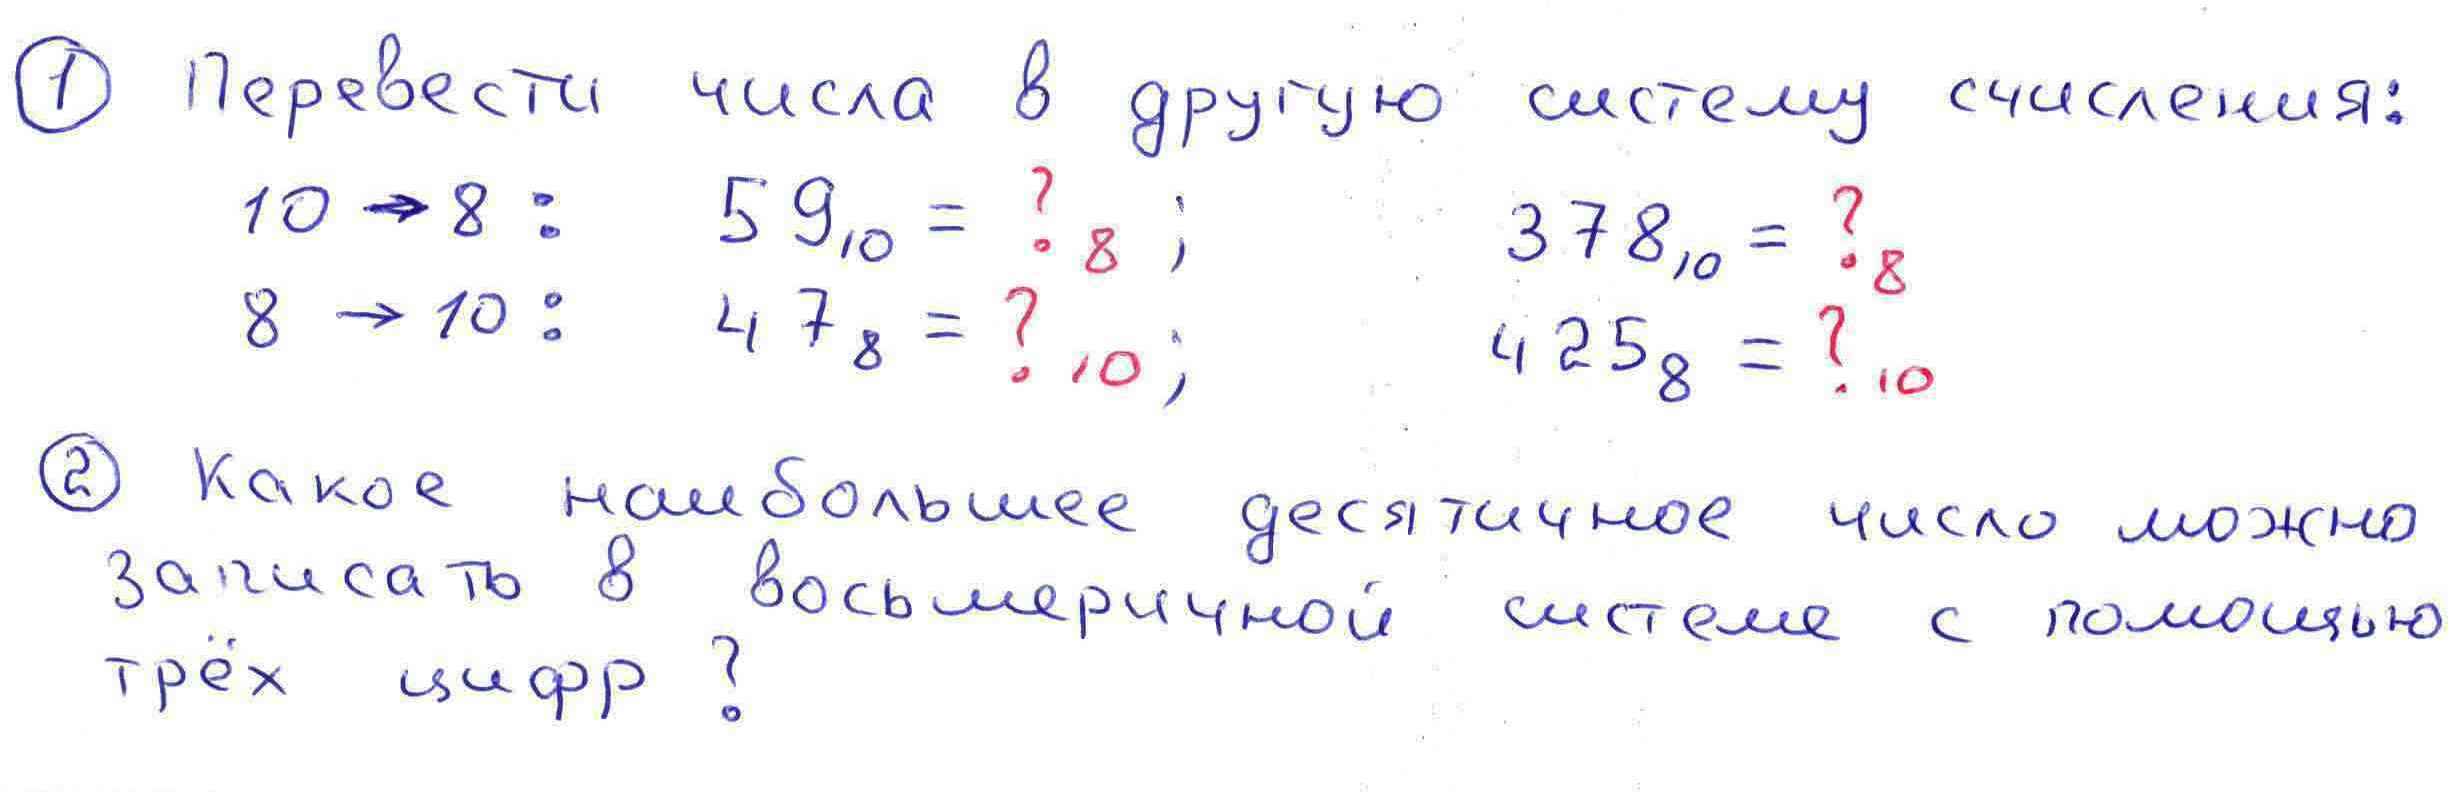 ① Перевести числа в другую систему счисления:
10 → 8 : 59₁₀ = ?₈ ; 378₁₀ = ?₈
8 → 10 : 47₈ = ?₁₀ ; 425₈ = ?₁₀
② Какое наибольшее десятичное число можно
записать в восьмеричной системе с помощью
трёх цифр ?